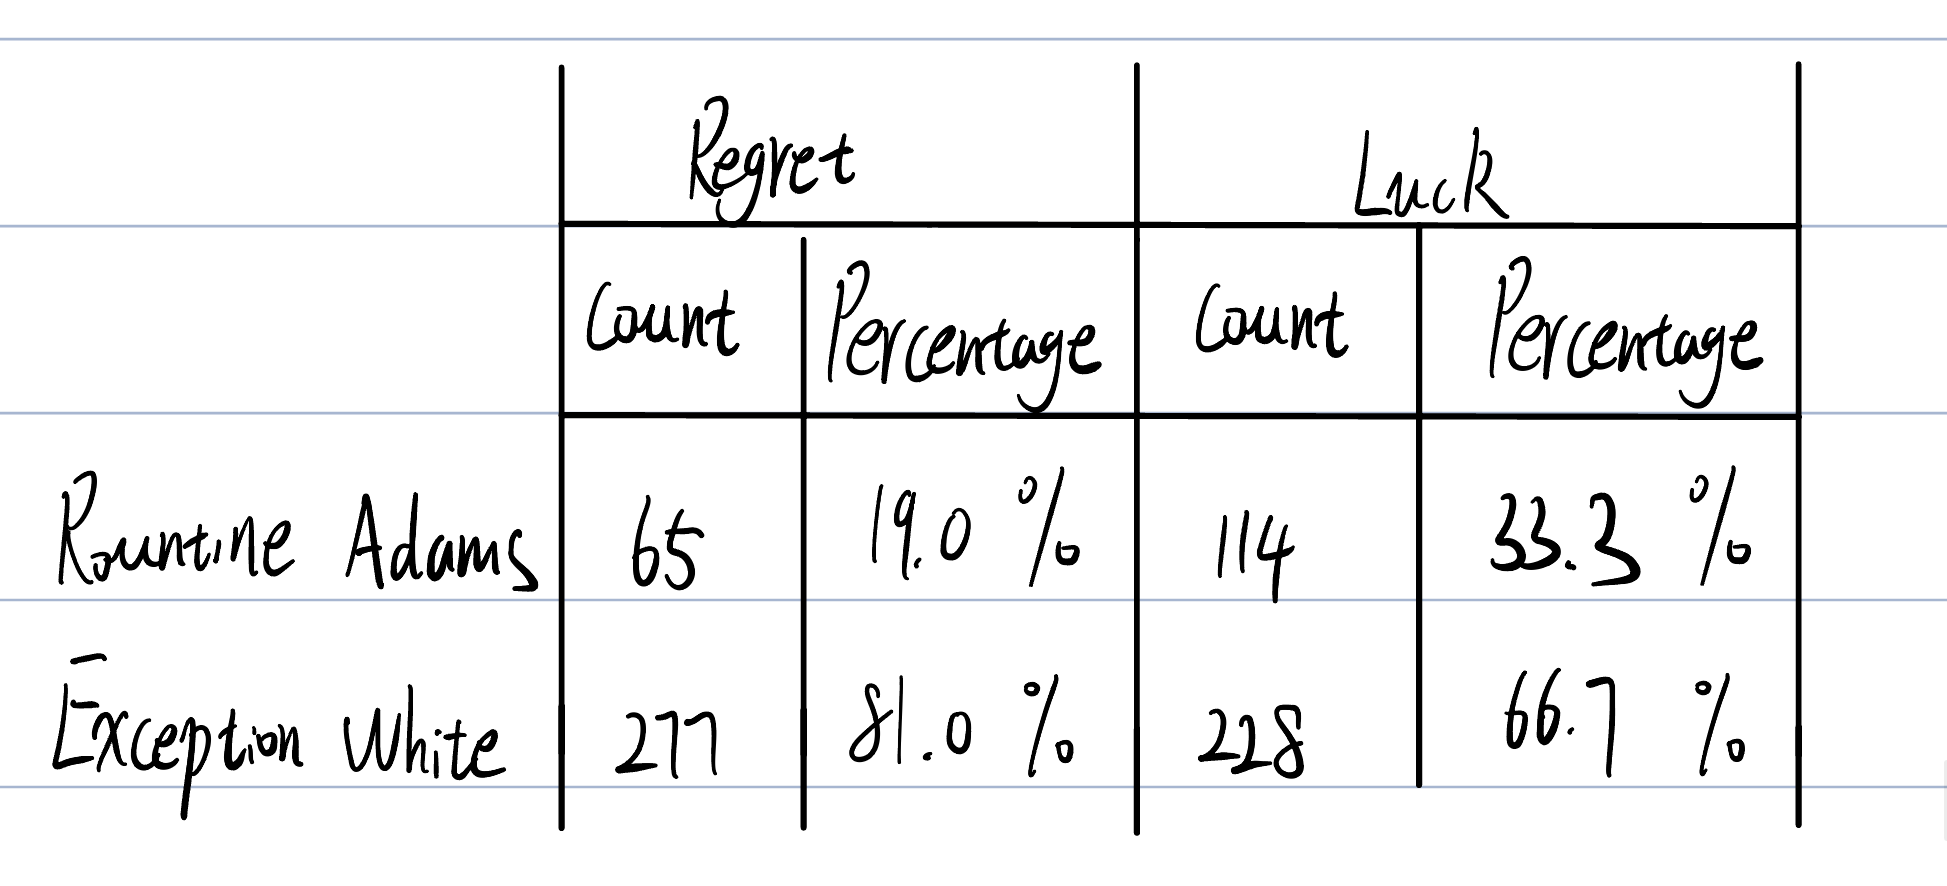 Regret Luck
Count Percentage Count Percentage
Rountine Adams 65 19.0 % 114 33.3 %
Exception White 277 81.0 % 228 66.7 %